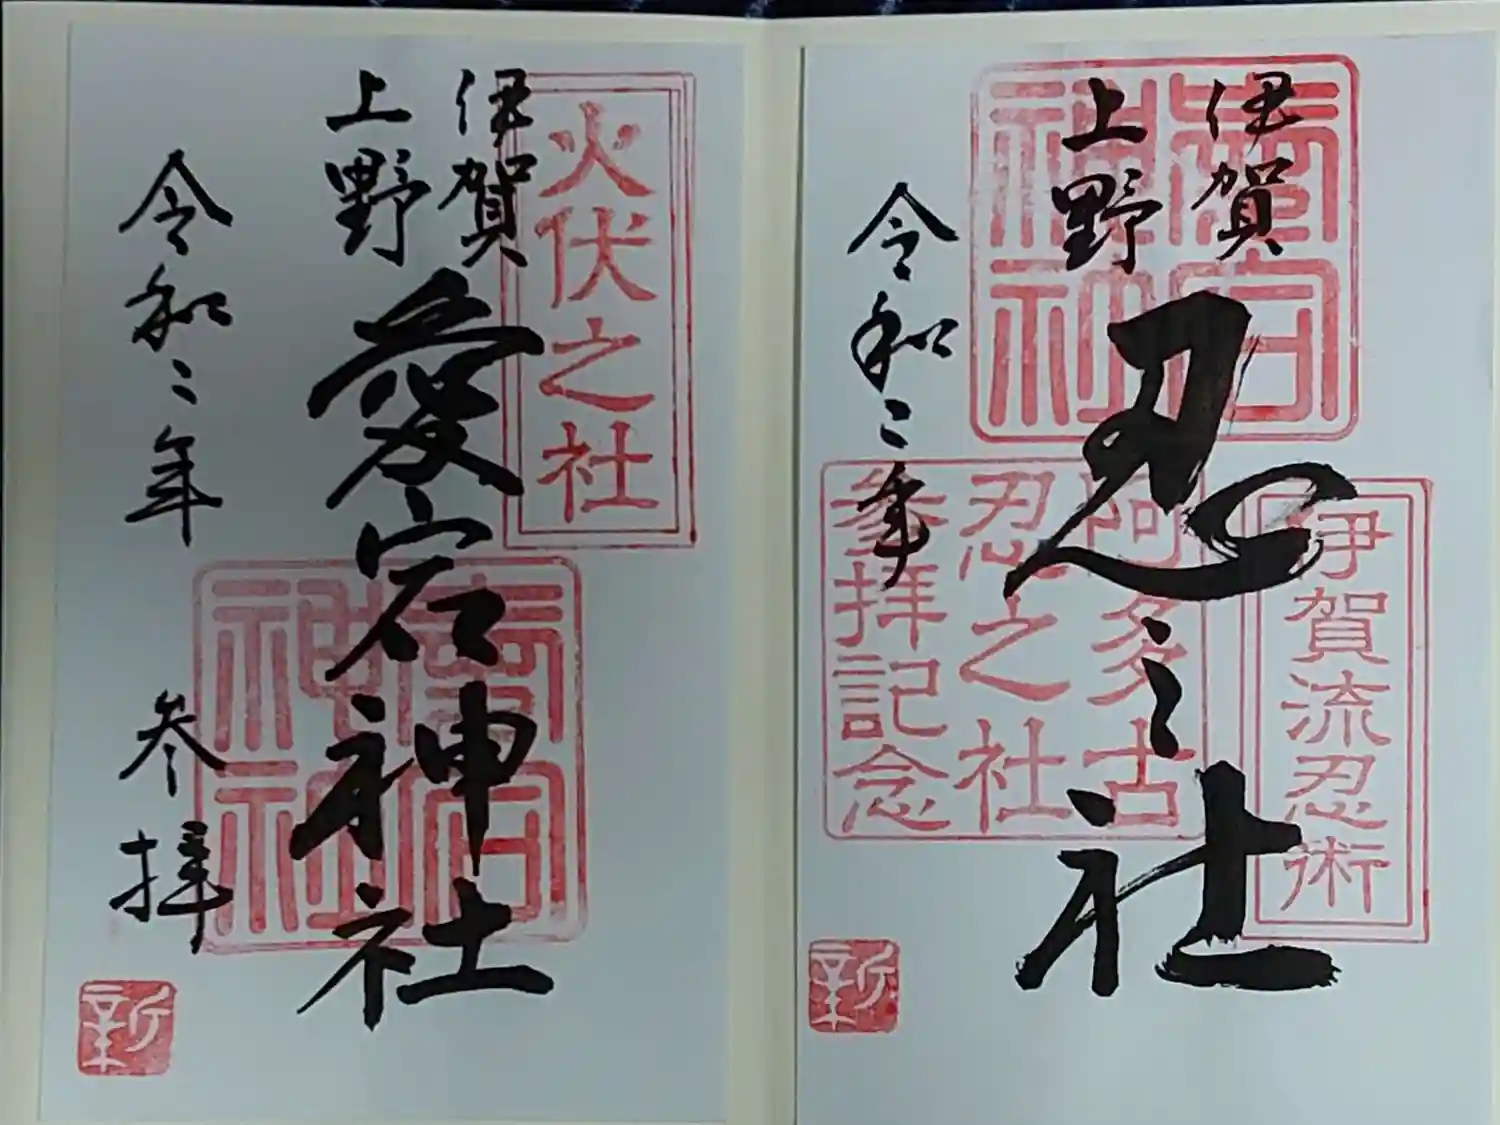 伊賀
上野
忍之社
令和二年
愛宕神社
伊賀流忍術
阿多古
忍之社
参拝記念
新
火伏之社
伊賀
上野
愛宕神社
令和二年
参拝
愛宕神社
新